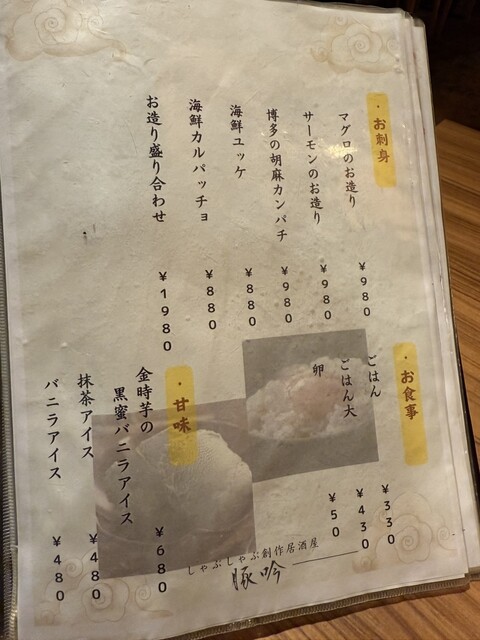 ・お刺身
マグロのお造り ¥980
サーモンのお造り ¥980
博多の胡麻カンパチ ¥980
海鮮ユッケ ¥880
海鮮カルパッチョ ¥880
お造り盛り合わせ ¥1980
・お食事
ごはん ¥330
ごはん大 ¥430
卵 ¥50
・甘味
金時芋の
黒蜜バニラアイス ¥680
抹茶アイス ¥480
バニラアイス ¥480
しゃぶしゃぶ創作居酒屋
豚吟